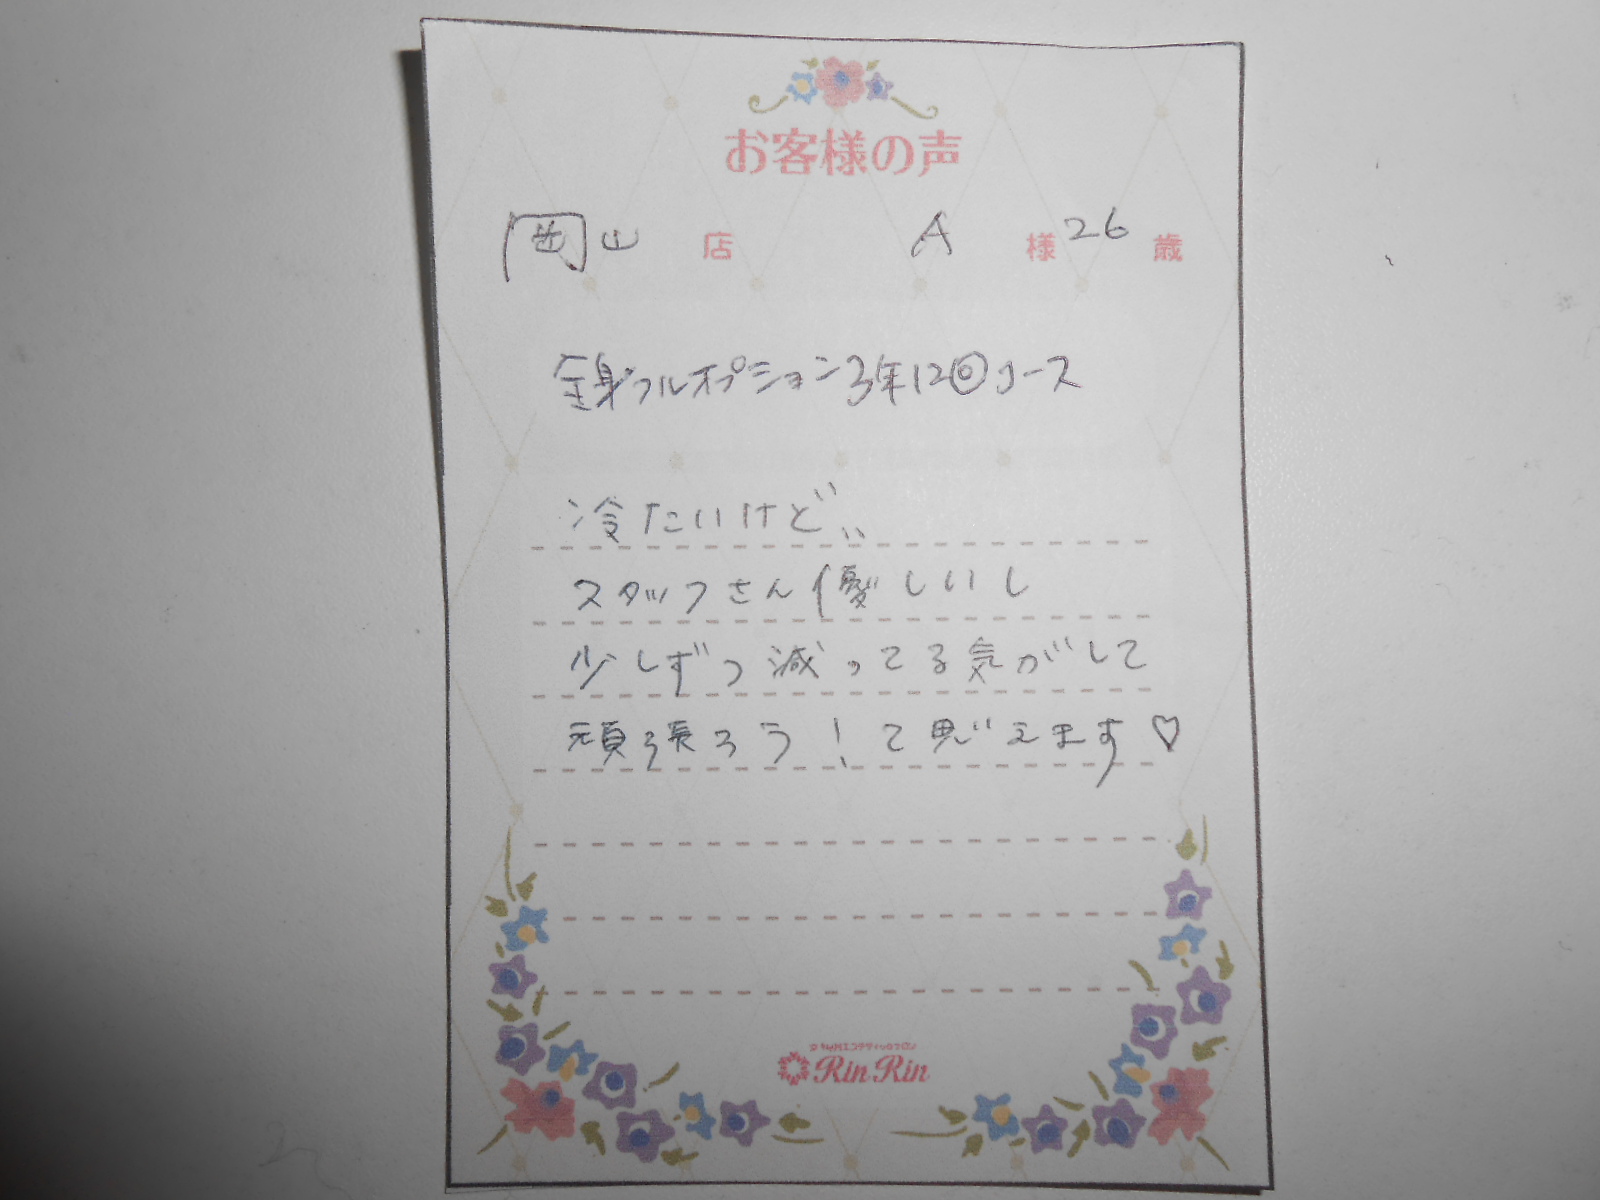 お客様の声
岡山 店 A 様 26 歳
全身フルオプション3年12回コース
冷たいけど、、
スタッフさん優しいし
少しずつ減ってる気がして
頑張ろう!て思えます♡
Rin Rin